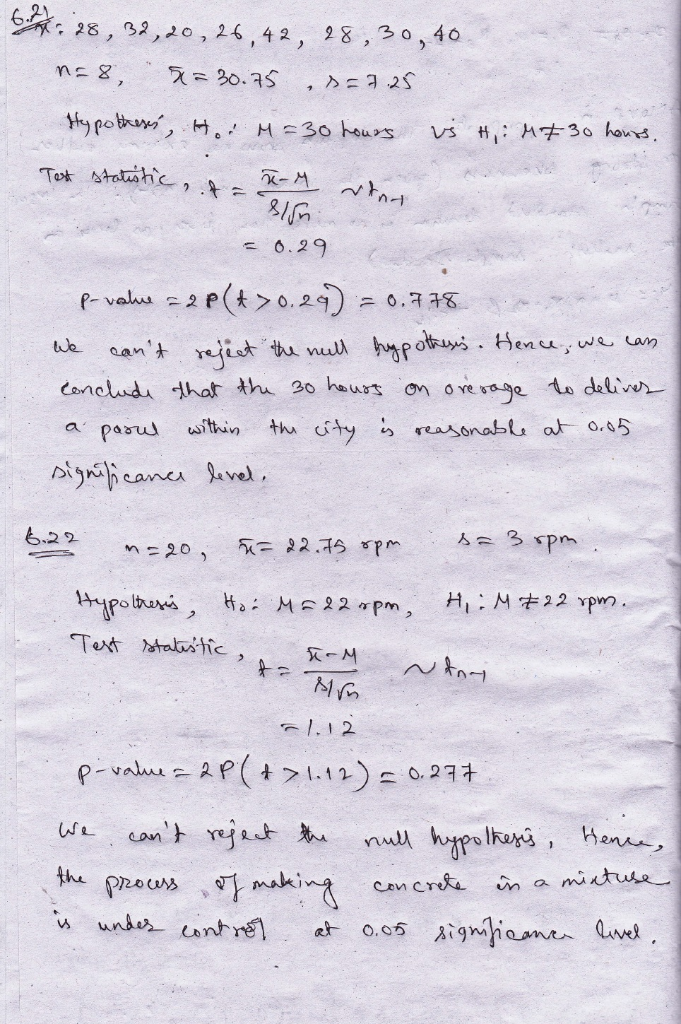 6.21
x: 28, 32, 20, 26, 42, 28, 30, 40
n=8, x̄ = 30.75, s=7.25
Hypothesis, H₀: M = 30 hours vs H₁: M ≠ 30 hours.
Test statistic, t = (x̄-M)/(s/√n) ~ tn-1
= 0.29
p-value = 2P(t > 0.29) = 0.778
We can't reject the null hypothesis. Hence, we can
conclude that the 30 hours on average to deliver
a parcel within the city is reasonable at 0.05
significance level.
6.22 n=20, x̄ = 22.75 rpm s = 3 rpm.
Hypothesis, H₀: M = 22 rpm, H₁: M ≠ 22 rpm.
Test statistic, t = (x̄-M)/(s/√n) ~ tn-1
= 1.12
p-value = 2P(t > 1.12) = 0.277
We can't reject the null hypothesis, Hence,
the process of making concrete in a mixture
is under control at 0.05 significance level.